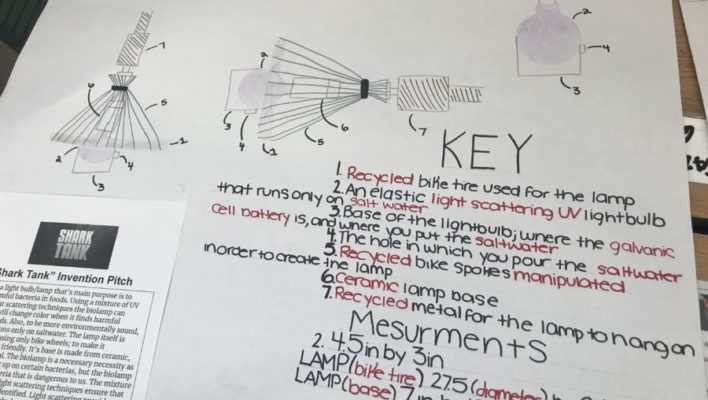 7
6
5
1
2
4
3
2
6
3
4
1
5
7
2
4
3
KEY
1. Recycled bike tire used for the lamp
2. An elastic light scattering UV lightbulb
that runs only on salt water
3. Base of the lightbulb; where the galvanic
cell battery is, and where you put the saltwater
4. The hole in which you pour the saltwater
5. Recycled bike spokes manipulated
inorder to create the lamp
6. Ceramic lamp base
7. Recycled metal for the lamp to hang on
Mesurments
2. 4.5in by 3in
LAMP (bike tire) 27.5 (diameter)
LAMP (base) 7 in
SHARK
TANK
Shark Tank" Invention Pitch
a light bulb/lamp that's main purpose is to
harmful bacteria in foods. Using a mixture of UV
light scattering techniques the biolamp can
will change color when it finds harmful
Also, to be more environmentally sound,
runs only on saltwater. The lamp itself is
using only bike wheels; to make it
friendly. It's base is made from ceramic,
The biolamp is a necessary necessity as
up on certain bacterias, but the biolamp
bacteria that is dangerous to us. The mixture
light scattering techniques ensure that
identified.